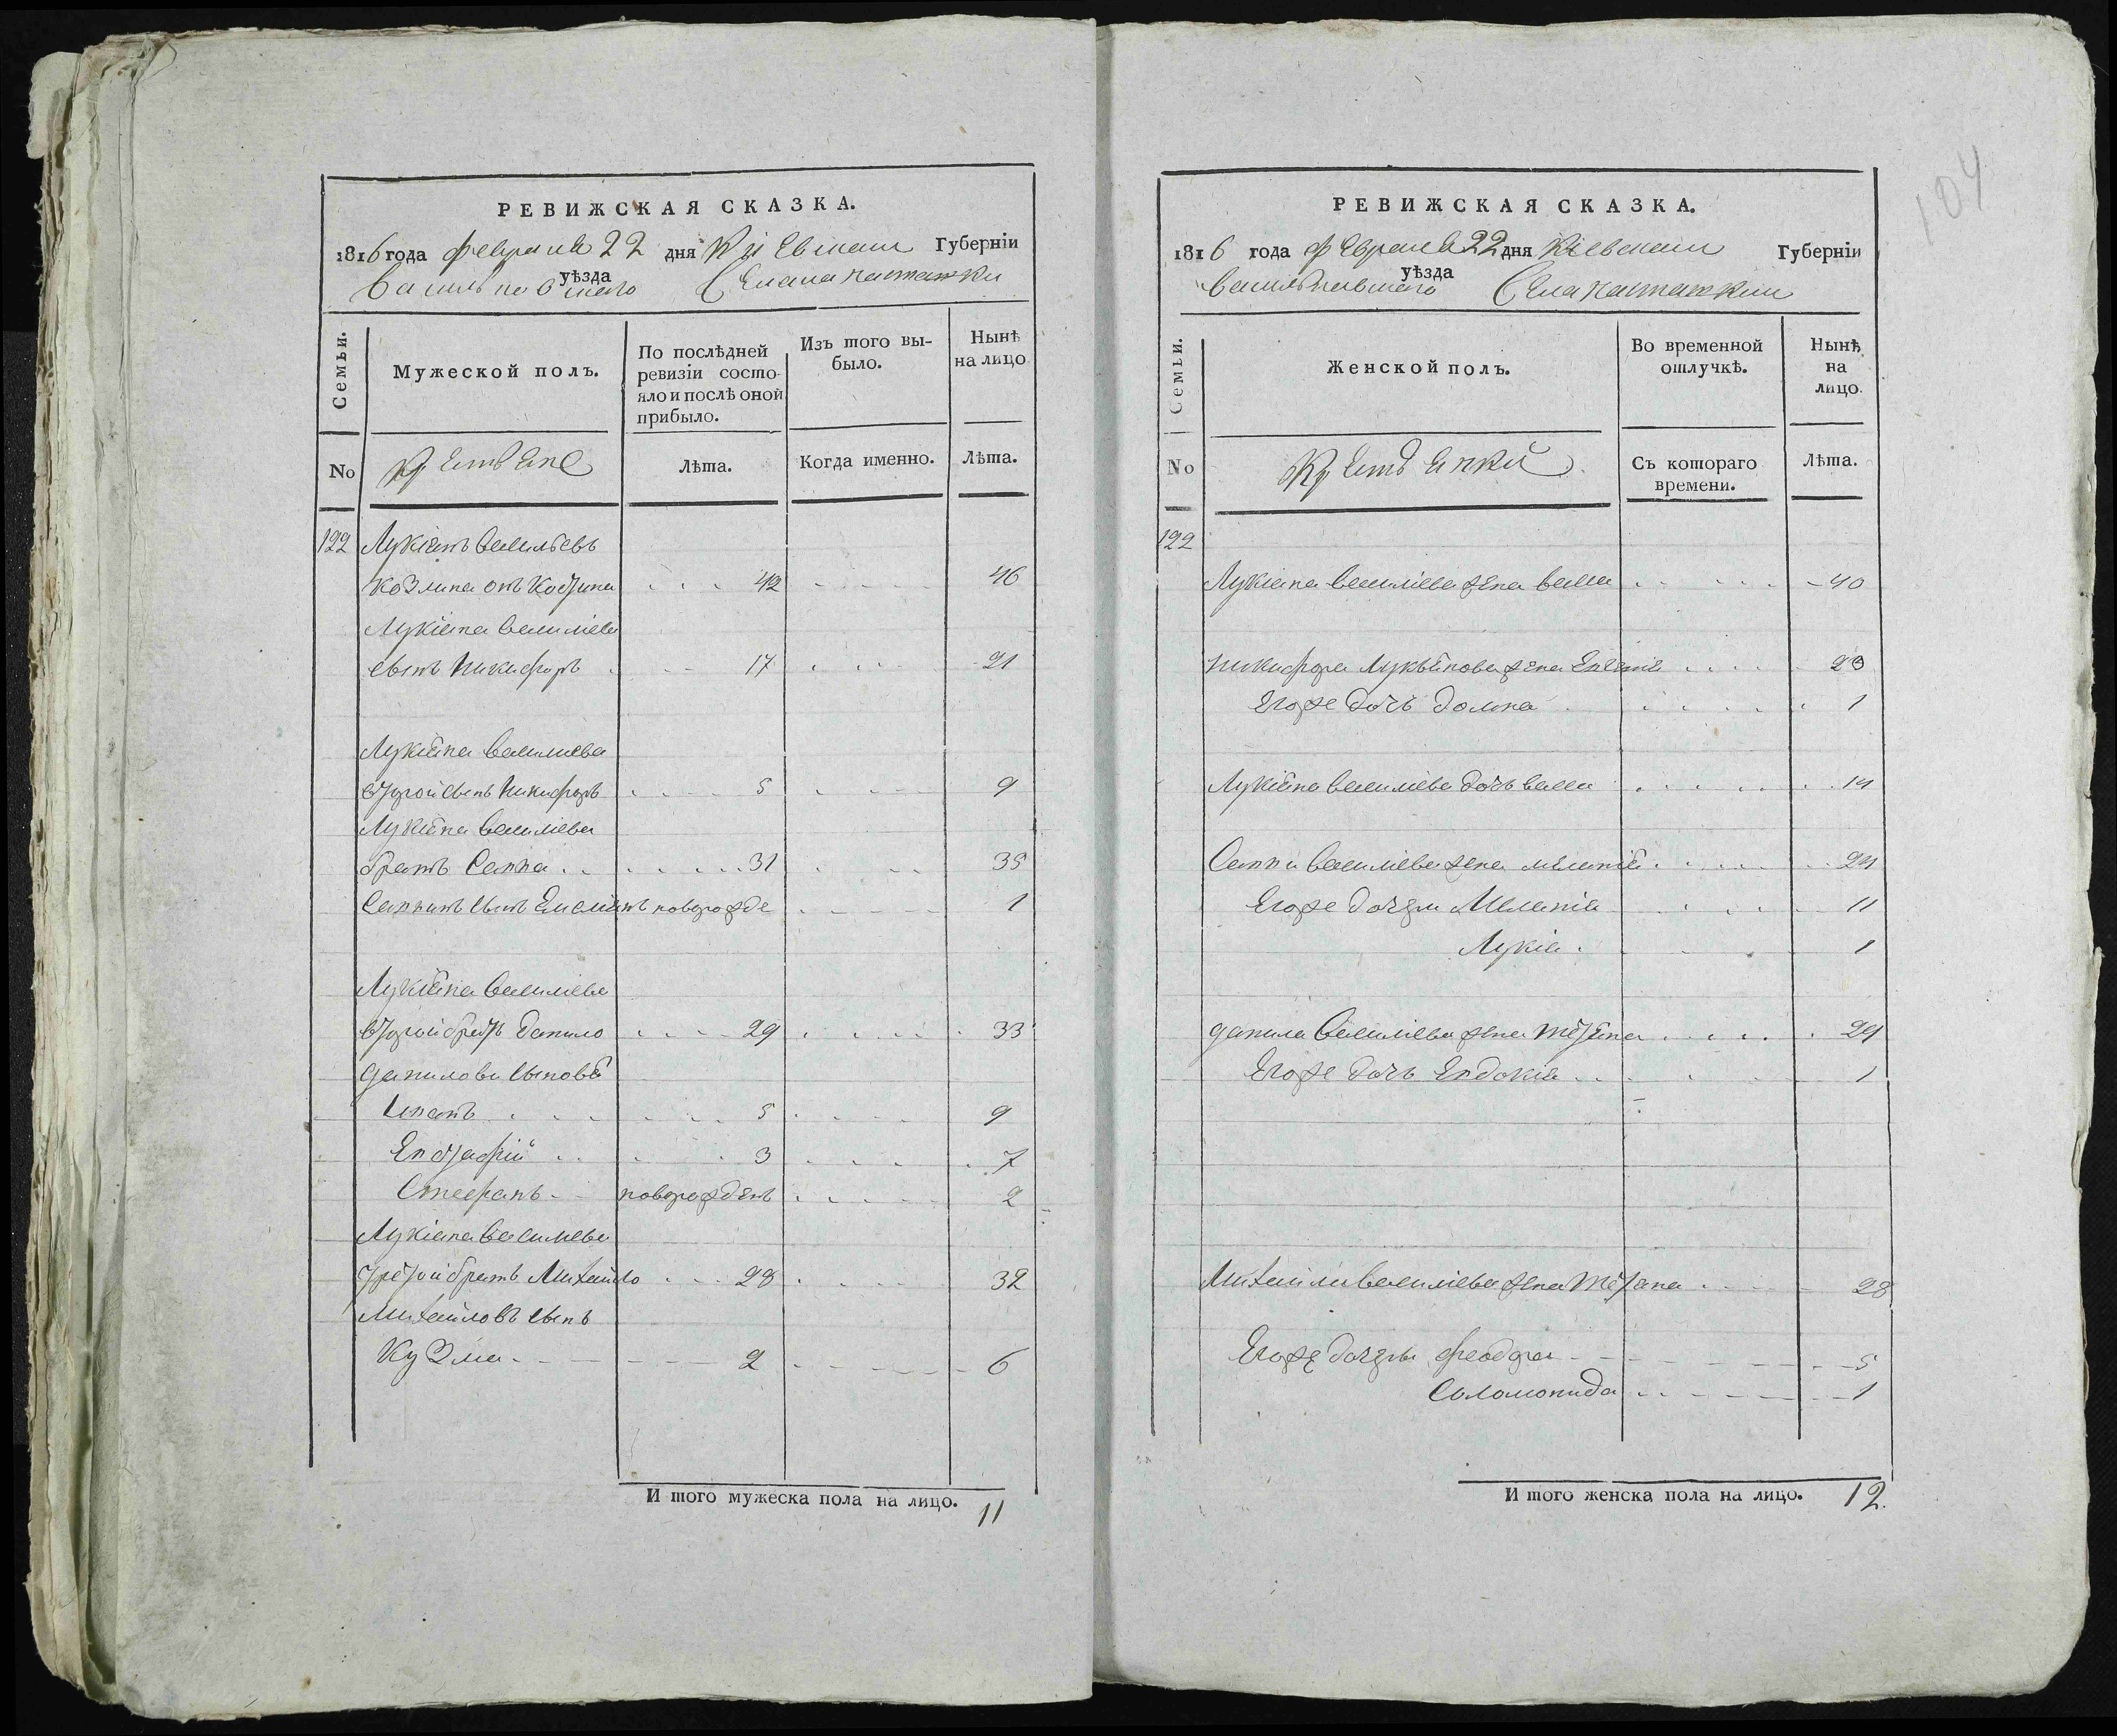 РЕВИЖСКАЯ СКАЗКА.
1816 года февраля 22 дня Кіевской Губерніи
Васильковского уѣзда Села
Семьи.
Мужеской полъ.
По послѣдней ревизіи состояло и послѣ оной прибыло.
Изъ того выбыло.
Нынѣ на лицо
No
Крестьяне
Лѣта.
Когда именно.
Лѣта.
122 Лукіянъ Васильевъ
42 46
Лукіяна Василіева
сынъ Никифоръ 17 21
Лукіяна Василиева
второй сынъ Никифоръ 5 9
Лукіяна Василіева
братъ Сапка 31 35
новорожде 1
Лукіяна Василіева
второй братъ Данило 29 33
Даниловы сыновя
Игнатъ 5 9
3 7
Стефанъ новорожденъ 2
Лукіяна Василиева
третой братъ Михайло 28 32
Михайловъ сынъ
Кузма 2 6
И того мужеска пола на лицо. 11
104
РЕВИЖСКАЯ СКАЗКА.
1816 года февраля 22 дня Кіевской Губерніи
Васильковского уѣзда Села
Семьи.
Женской полъ.
Во временной отлучкѣ.
Нынѣ на лицо.
No
Крестянки
Съ котораго времени.
Лѣта.
122
Лукіяна Василіева жена Васса 40
Никифора Лукьянова жена 20
Его же дочь Домна 1
Лукіяна Василіева дочь Васса 14
Сапки Василіева жена Меланія 24
Его же дочери Меланія 11
Лукія 1
Данила Василіева жена Тетяна 29
Его же дочь Евдокія 1
Михайлы Василіева жена Тетяна 28
Его же дочеры Феодора 5
Соломонида 1
И того женска пола на лицо. 12.